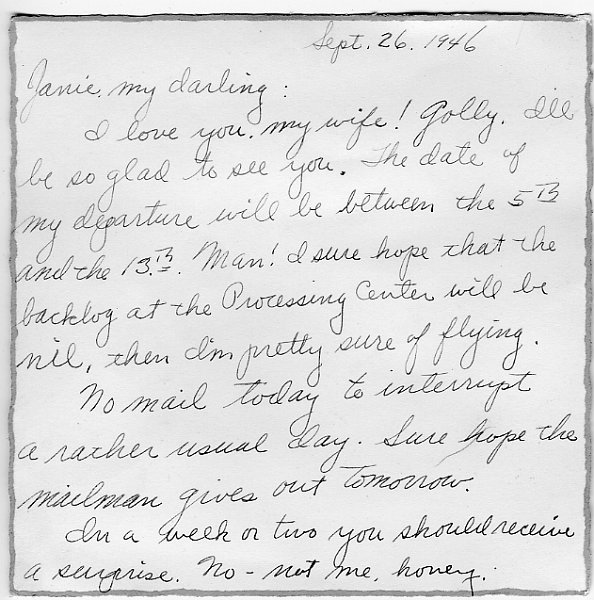 Sept. 26. 1946
Janie, my darling:
I love you, my wife! Golly. I'll
be so glad to see you. The date of
my departure will be between the 5th
and the 13th. Man! I sure hope that the
backlog at the Processing Center will be
nil, then I'm pretty sure of flying.
No mail today to interrupt
a rather usual day. Sure hope the
mailman gives out tomorrow.
In a week or two you should receive
a surprise. No - not me, honey.